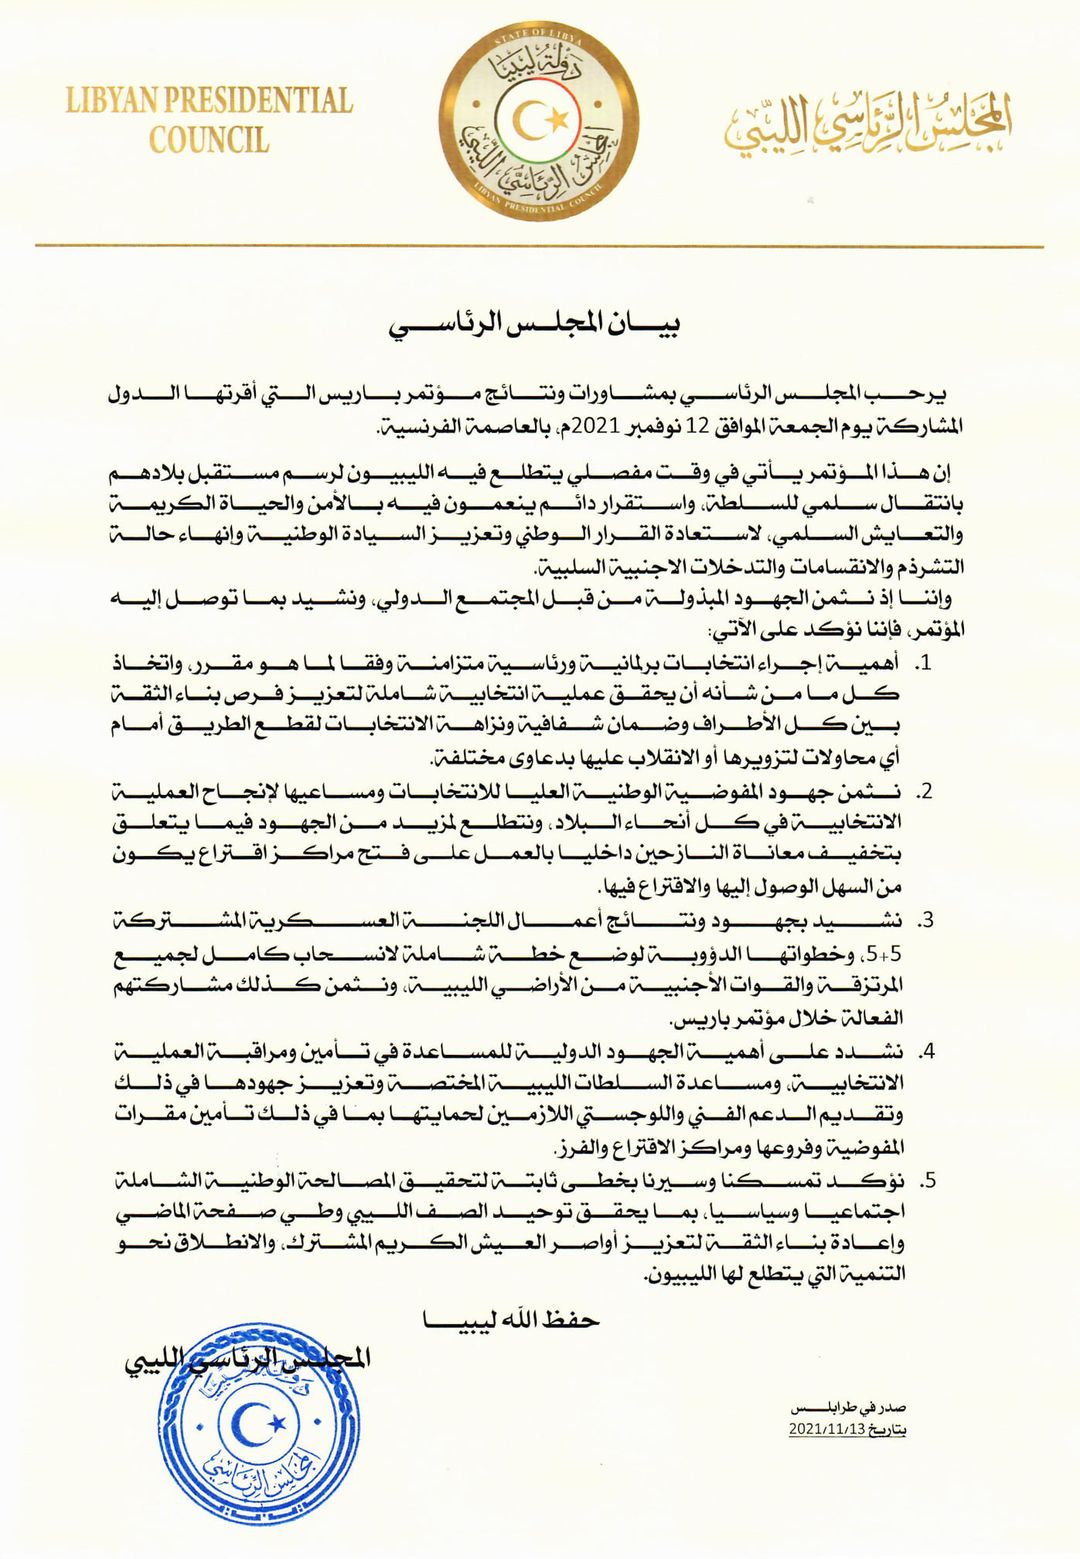 LIBYAN PRESIDENTIAL
COUNCIL
STATE OF LIBYA
دولة ليبيا
المجلس الرئاسي الليبي
LIBYAN PRESIDENTIAL COUNCIL
المجلس الرئاسي الليبي
بيان المجلس الرئاسي
يرحب المجلس الرئاسي بمشاورات ونتائج مؤتمر باريس التي أقرتها الدول
المشاركة يوم الجمعة الموافق 12 نوفمبر 2021م، بالعاصمة الفرنسية.
إن هذا المؤتمر يأتي في وقت مفصلي يتطلع فيه الليبيون لرسم مستقبل بلادهم
بانتقال سلمي للسلطة، واستقرار دائم ينعمون فيه بالأمن والحياة الكريمة
والتعايش السلمي، لاستعادة القرار الوطني وتعزيز السيادة الوطنية وإنهاء حالة
التشرذم والانقسامات والتدخلات الاجنبية السلبية.
وإننا إذ نثمن الجهود المبذولة من قبل المجتمع الدولي، ونشيد بما توصل إليه
المؤتمر، فإننا نؤكد على الآتي:
1. أهمية إجراء انتخابات برلمانية ورئاسية متزامنة وفقا لما هو مقرر، واتخاذ
كل ما من شأنه أن يحقق عملية انتخابية شاملة لتعزيز فرص بناء الثقة
بين كل الأطراف وضمان شفافية ونزاهة الانتخابات لقطع الطريق أمام
أي محاولات لتزويرها أو الانقلاب عليها بدعاوى مختلفة.
2. نثمن جهود المفوضية الوطنية العليا للانتخابات ومساعيها لإنجاح العملية
الانتخابية في كل أنحاء البلاد، ونتطلع لمزيد من الجهود فيما يتعلق
بتخفيف معاناة النازحين داخليا بالعمل على فتح مراكز اقتراع يكون
من السهل الوصول إليها والاقتراع فيها.
3. نشيد بجهود ونتائج أعمال اللجنة العسكرية المشتركة
5+5، وخطواتها الدؤوبة لوضع خطة شاملة لانسحاب كامل لجميع
المرتزقة والقوات الأجنبية من الأراضي الليبية، ونثمن كذلك مشاركتهم
الفعالة خلال مؤتمر باريس.
4. نشدد على أهمية الجهود الدولية للمساعدة في تأمين ومراقبة العملية
الانتخابية، ومساعدة السلطات الليبية المختصة وتعزيز جهودها في ذلك
وتقديم الدعم الفني واللوجستي اللازمين لحمايتها بما في ذلك تأمين مقرات
المفوضية وفروعها ومراكز الاقتراع والفرز.
5. نؤكد تمسكنا وسيرنا بخطى ثابتة لتحقيق المصالحة الوطنية الشاملة
اجتماعيا وسياسيا، بما يحقق توحيد الصف الليبي وطي صفحة الماضي
وإعادة بناء الثقة لتعزيز أواصر العيش الكريم المشترك، والانطلاق نحو
التنمية التي يتطلع لها الليبيون.
حفظ الله ليبيا
المجلس الرئاسي الليبي
دولة ليبيا
المجلس الرئاسي
صدر في طرابلس
بتاريخ 2021/11/13